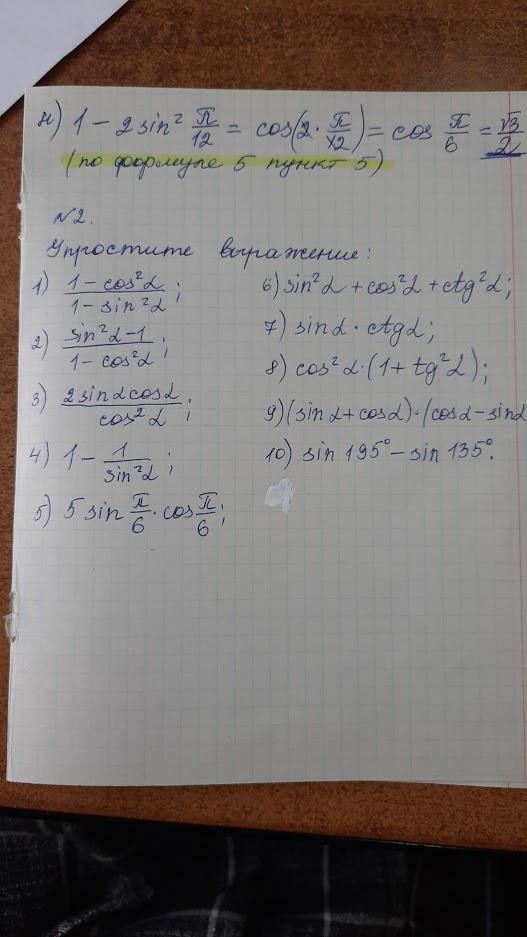 н) 1 - 2 sin² π/12 = cos(2 · π/12) = cos π/6 = √3/2
(по формуле 5 пункт 5)
№2.
Упростите выражение:
1) (1 - cos²α)/(1 - sin²α);
2) (sin²α - 1)/(1 - cos²α);
3) (2 sinα cosα)/(cos²α);
4) 1 - 1/sin²α;
5) 5 sin π/6 · cos π/6;
6) sin²α + cos²α + ctg²α;
7) sinα · ctgα;
8) cos²α · (1 + tg²α);
9) (sinα + cosα) · (cosα - sinα
10) sin 195° - sin 135°.